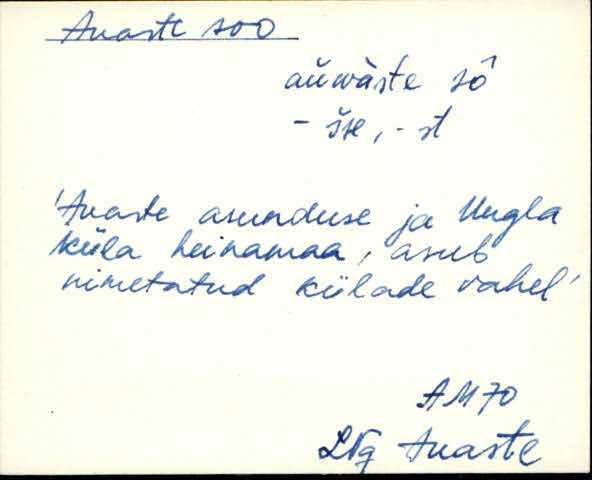 Auaste soo
aūwàste sô
- šse, - st
'Auaste asunduse ja Uugla
küla heinamaa, asub
nimetatud külade vahel'
AM70
LNg Auaste